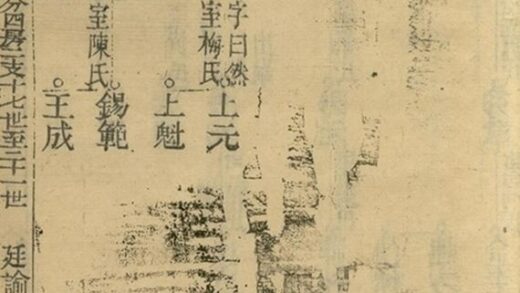 字曰然
室梅氏
上元
上魁
室陳氏
錫範
王成
分四房二支十七世至二十一世 廷諭